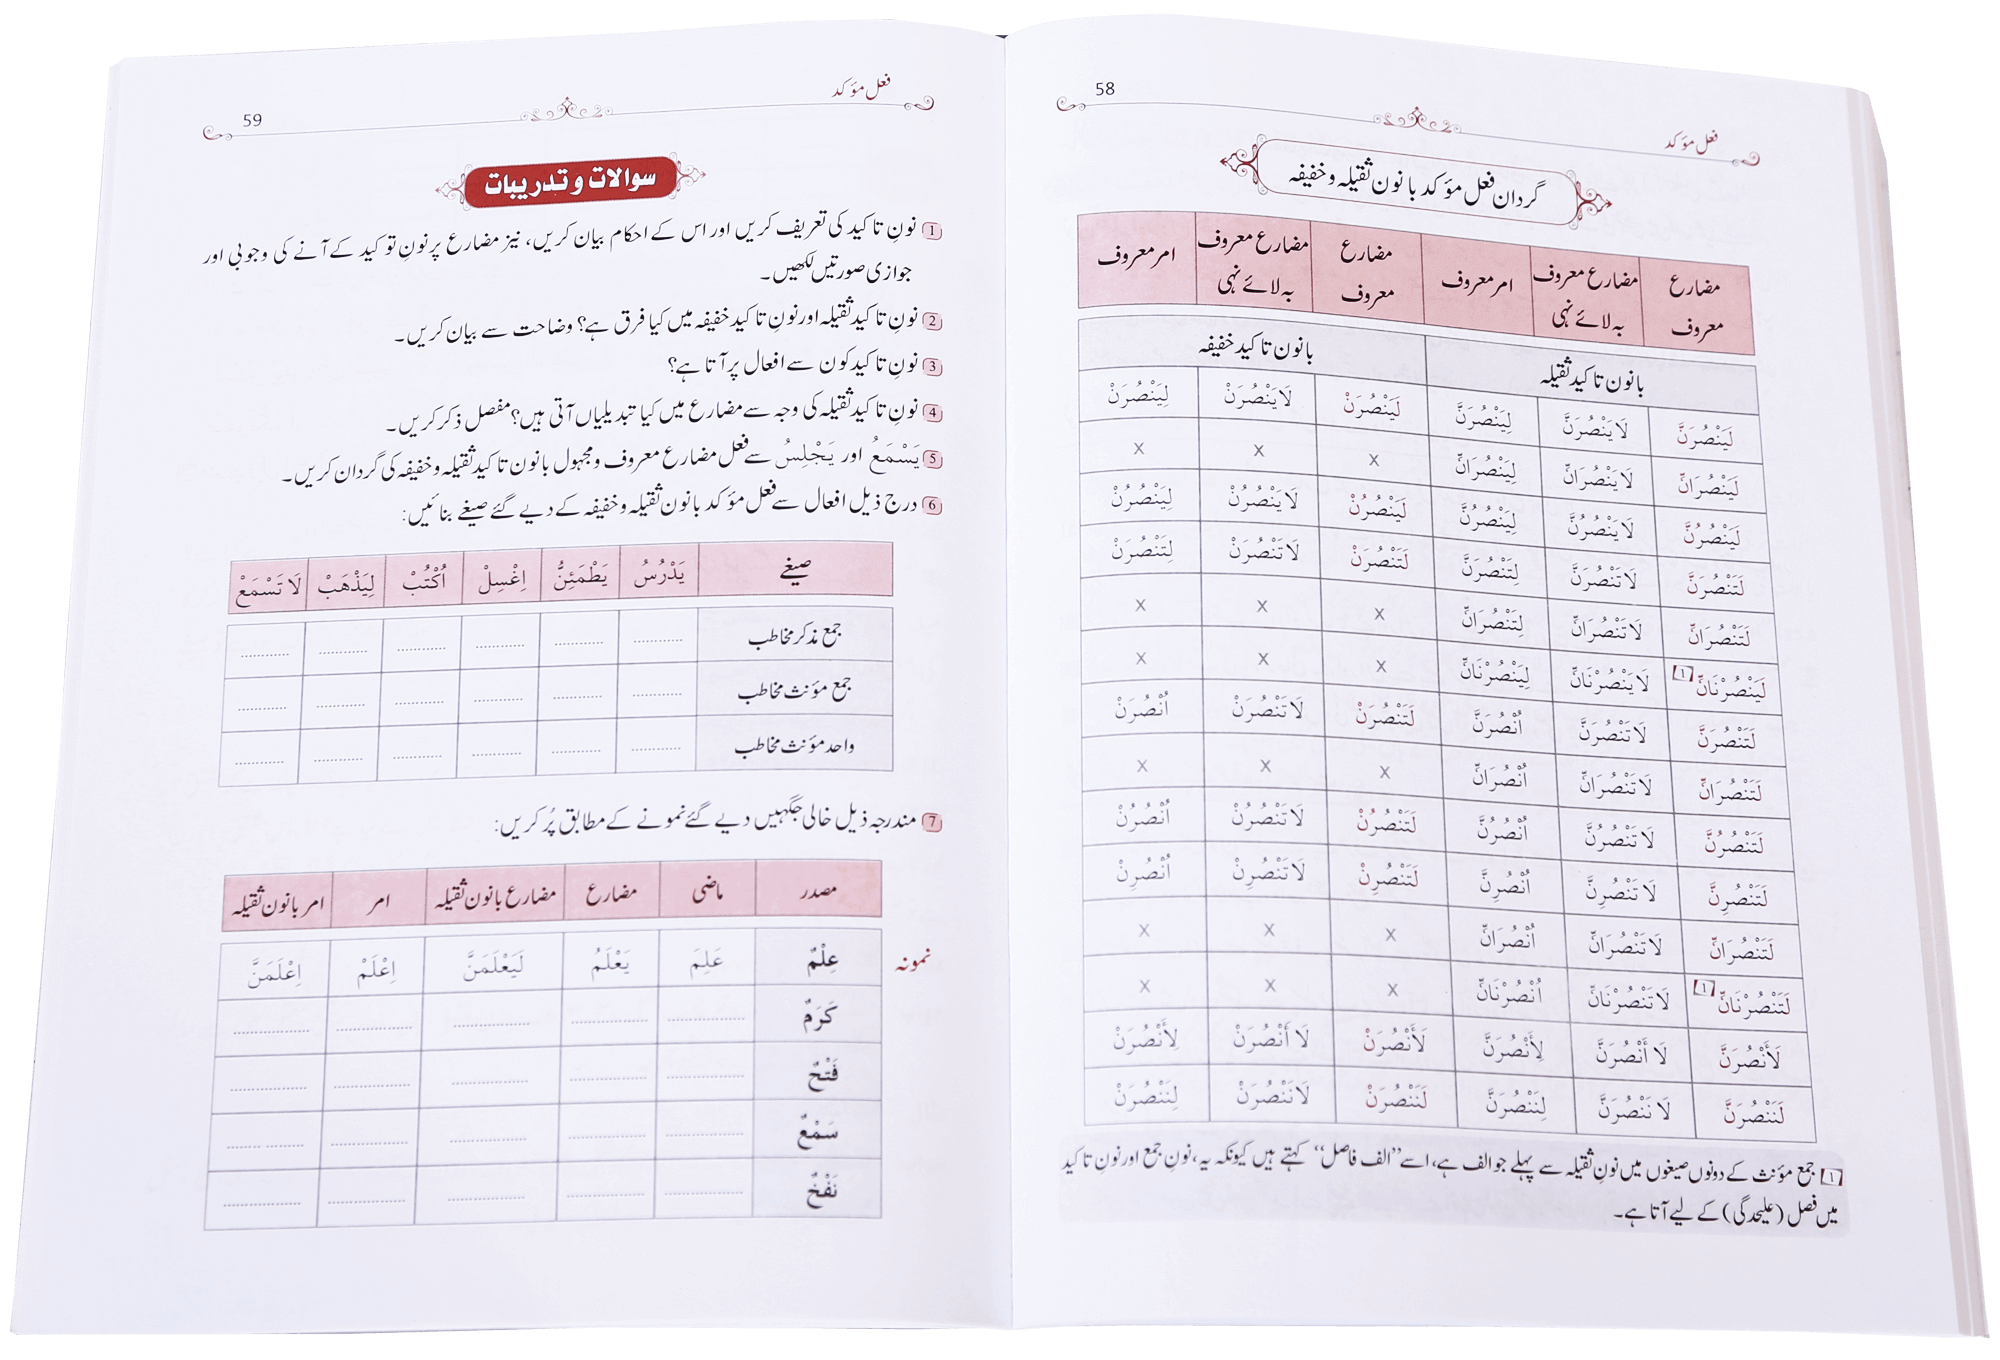 58
فعل مؤکد
گردان فعل مؤکد بانون ثقیلہ و خفیفہ
مضارع معروف | مضارع معروف بہ لائے نہی | امر معروف | مضارع معروف | مضارع معروف بہ لائے نہی | امر معروف
بانون تاکید ثقیلہ | بانون تاکید خفیفہ
لَيَنْصُرَنَّ | لَا يَنْصُرَنَّ | لِيَنْصُرَنَّ | لَيَنْصُرَنْ | لَا يَنْصُرَنْ | لِيَنْصُرَنْ
لَيَنْصُرَانِّ | لَا يَنْصُرَانِّ | لِيَنْصُرَانِّ | x | x | x
لَيَنْصُرُنَّ | لَا يَنْصُرُنَّ | لِيَنْصُرُنَّ | لَيَنْصُرُنْ | لَا يَنْصُرُنْ | لِيَنْصُرُنْ
لَتَنْصُرَنَّ | لَا تَنْصُرَنَّ | لِتَنْصُرَنَّ | لَتَنْصُرَنْ | لَا تَنْصُرَنْ | لِتَنْصُرَنْ
لَتَنْصُرَانِّ | لَا تَنْصُرَانِّ | لِتَنْصُرَانِّ | x | x | x
لَيَنْصُرْنَانِّ [۱] | لَا يَنْصُرْنَانِّ | لِيَنْصُرْنَانِّ | x | x | x
لَتَنْصُرَنَّ | لَا تَنْصُرَنَّ | اُنْصُرَنَّ | لَتَنْصُرَنْ | لَا تَنْصُرَنْ | اُنْصُرَنْ
لَتَنْصُرَانِّ | لَا تَنْصُرَانِّ | اُنْصُرَانِّ | x | x | x
لَتَنْصُرُنَّ | لَا تَنْصُرُنَّ | اُنْصُرُنَّ | لَتَنْصُرُنْ | لَا تَنْصُرُنْ | اُنْصُرُنْ
لَتَنْصُرِنَّ | لَا تَنْصُرِنَّ | اُنْصُرِنَّ | لَتَنْصُرِنْ | لَا تَنْصُرِنْ | اُنْصُرِنْ
لَتَنْصُرَانِّ | لَا تَنْصُرَانِّ | اُنْصُرَانِّ | x | x | x
لَتَنْصُرْنَانِّ [۱] | لَا تَنْصُرْنَانِّ | اُنْصُرْنَانِّ | x | x | x
لَأَنْصُرَنَّ | لَا أَنْصُرَنَّ | لِأَنْصُرَنَّ | لَأَنْصُرَنْ | لَا أَنْصُرَنْ | لِأَنْصُرَنْ
لَنَنْصُرَنَّ | لَا نَنْصُرَنَّ | لِنَنْصُرَنَّ | لَنَنْصُرَنْ | لَا نَنْصُرَنْ | لِنَنْصُرَنْ
[۱] جمع مؤنث کے دونوں صیغوں میں نونِ ثقیلہ سے پہلے جو الف ہے، اسے ”الف فاصل“ کہتے ہیں کیونکہ یہ، نونِ جمع اور نونِ تاکید
میں فصل (علیحدگی) کے لیے آتا ہے۔
فعل مؤکد
59
سوالات و تدریبات
1 نونِ تاکید کی تعریف کریں اور اس کے احکام بیان کریں، نیز مضارع پر نونِ توکید کے آنے کی وجوبی اور
جوازی صورتیں لکھیں۔
2 نونِ تاکید ثقیلہ اور نونِ تاکید خفیفہ میں کیا فرق ہے؟ وضاحت سے بیان کریں۔
3 نونِ تاکید کون سے افعال پر آتا ہے؟
4 نونِ تاکید ثقیلہ کی وجہ سے مضارع میں کیا تبدیلیاں آتی ہیں؟ مفصل ذکر کریں۔
5 يَسْمَعُ اور يَجْلِسُ سے فعل مضارع معروف و مجہول بانون تاکید ثقیلہ و خفیفہ کی گردان کریں۔
6 درج ذیل افعال سے فعل مؤکد بانون ثقیلہ و خفیفہ کے دیے گئے صیغے بنائیں:
صیغے | يَدْرُسُ | يَطْمَئِنُّ | اِغْسِلْ | اُكْتُبْ | لِيَذْهَبْ | لَا تَسْمَعْ
جمع مذکر مخاطب | ............ | ............ | ............ | ............ | ............ | ............
جمع مؤنث مخاطب | ............ | ............ | ............ | ............ | ............ | ............
واحد مؤنث مخاطب | ............ | ............ | ............ | ............ | ............ | ............
7 مندرجہ ذیل خالی جگہیں دیے گئے نمونے کے مطابق پُر کریں:
مصدر | ماضی | مضارع | مضارع بانون ثقیلہ | امر | امر بانون ثقیلہ
نمونہ عِلْمٌ | عَلِمَ | يَعْلَمُ | لَيَعْلَمَنَّ | اِعْلَمْ | اِعْلَمَنَّ
كَرَمٌ | .................. | .................. | .................. | .................. | ..................
فَتْحٌ | .................. | .................. | .................. | .................. | ..................
سَمْعٌ | .................. | .................. | .................. | .................. | ..................
نَفْخٌ | .................. | .................. | .................. | .................. | ..................